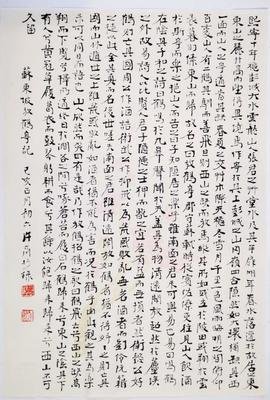 熙寧十年穐彭城大水雲龍山人張君之草堂水及其半扉明年春水落遷於故居之東
東山之麓升高而望得異境焉作亭於其上彭城之山岡嶺四合隱然如大環獨缺其西
一面而山人之亭適當其缺春夏之交草木際天穐冬雪月千里一色風雨晦明之間俯仰
百變山人有二鶴甚馴而善飛旦則望西山之缺而放焉縱其所如或立於陂田或翔於雲
表暮則傃東山而歸故名之曰放鶴亭郡守蘇軾時從賓佐僚吏往見山人飲酒
於斯亭而樂之挹山人而告之曰子知隱居之樂乎雖南面之君未可與易也易曰鳴鶴
在陰其子和之詩曰鶴鳴于九皋聲聞于天蓋其為物清遠閒放超然於塵埃
之外故易詩人以比賢人君子隱德之士狎而玩之宜若有益而無損者然衛懿公好
鶴則亡其國周公作酒誥衛武公作抑戒以為荒惑敗亂無若酒者而劉伶阮籍
之徒以此全其真而名後世嗟夫南面之君雖清遠閒放如鶴者猶不得好好之則亡其
國而山林遁世之士雖荒惑敗亂如酒者猶不能為害而況於鶴乎由此觀之其為樂
未可以同日而語也山人欣然而笑曰有是哉乃作放鶴招鶴之歌曰鶴飛去兮西山之缺高
翔而下覽兮擇所適澗谷之間兮啄蒼苔而履白石鶴歸來兮東山之陰其下
有人兮黃冠草屨葛衣而鼓琴躬耕而食兮其餘以汝飽歸來歸來兮西山不可
久留 蘇東坡放鶴亭記 己亥四月初六